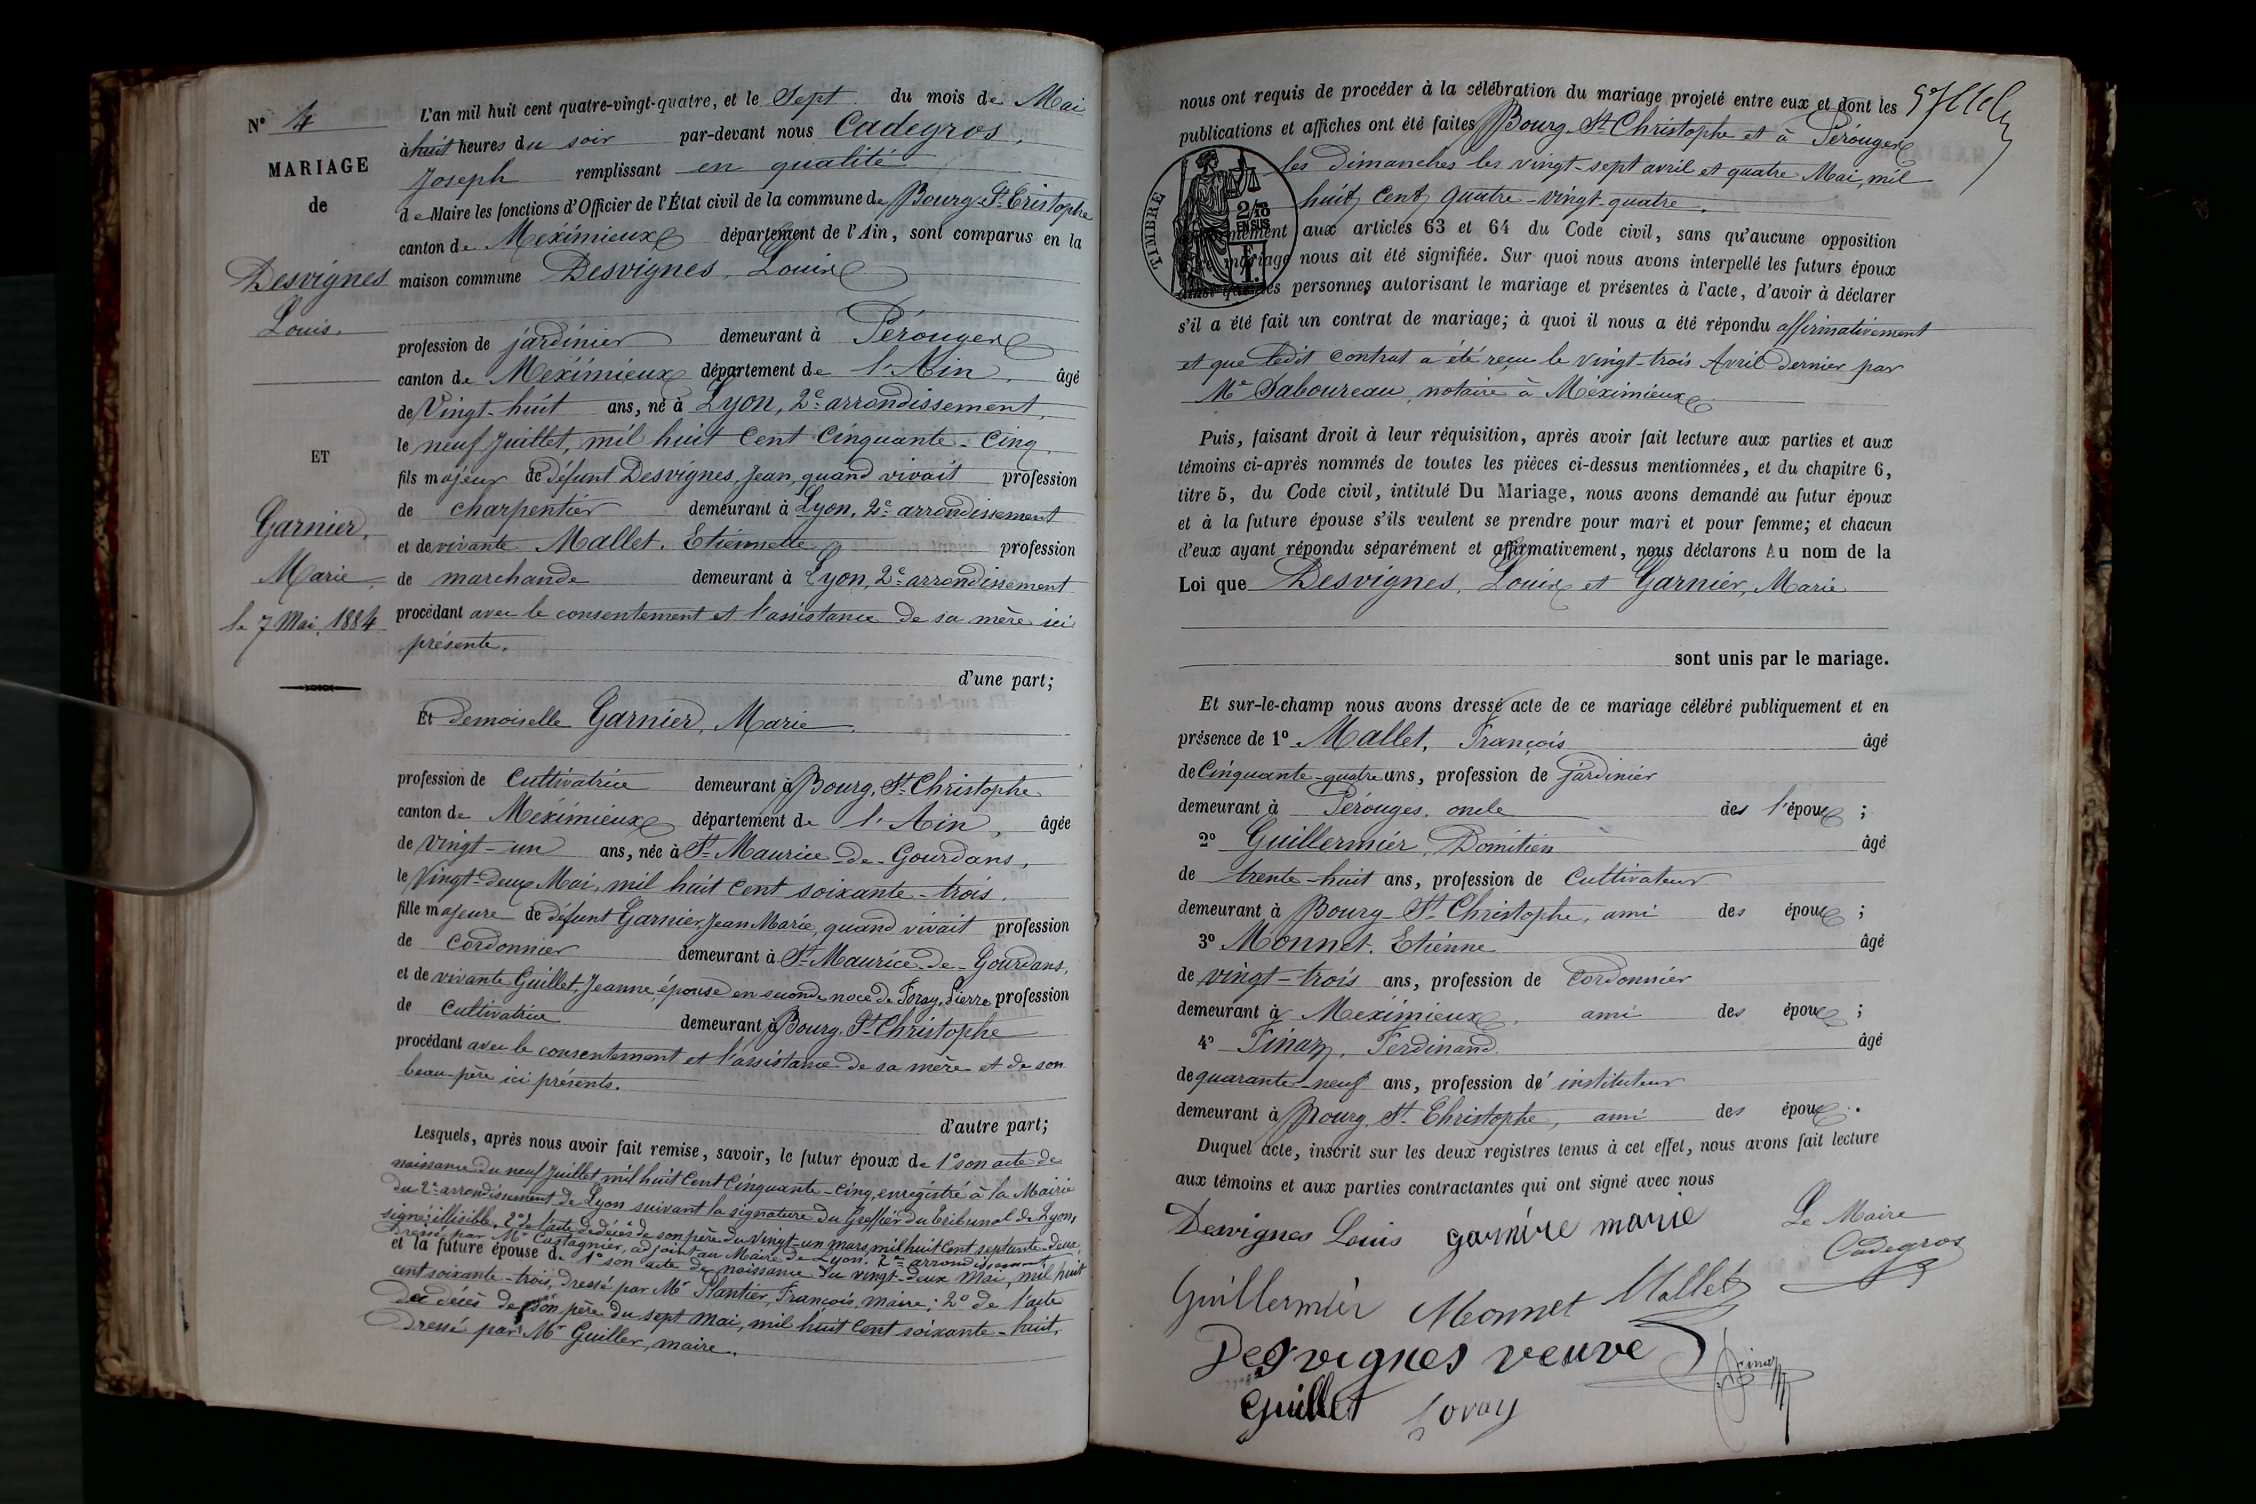 N° 4
MARIAGE
de
Desvignes
Louis.
ET
Garnier,
Marie
le 7 Mai, 1884
L'an mil huit cent quatre-vingt-quatre, et le Sept du mois de Mai
à huit heures du soir par-devant nous Cadegros,
Joseph remplissant en qualité
de Maire les fonctions d'Officier de l'État civil de la commune de Bourg-St-Cristophe
canton de Meximieux département de l'Ain, sont comparus en la
maison commune Desvignes, Louis
profession de jardinier demeurant à Pérouges
canton de Méximieux département de l'Ain, âgé
de Vingt-huit ans, né à Lyon, 2e arrondissement,
le neuf Juillet, mil huit cent cinquante-cinq,
fils majeur de défunt Desvignes, Jean, quand vivait profession
de charpentier demeurant à Lyon, 2e arrondissement
et de vivante Mallet, Etiennette profession
de marchande demeurant à Lyon, 2e arrondissement
procédant avec le consentement et l'assistance de sa mère ici
présente.
d'une part;
Et demoiselle Garnier, Marie
profession de Cultivatrice demeurant à Bourg-St-Christophe
canton de Méximieux département de l'Ain, âgée
de vingt-un ans, née à St-Maurice-de-Gourdans,
le Vingt-deux Mai, mil huit cent soixante-trois,
fille majeure de défunt Garnier, Jean Marie, quand vivait profession
de cordonnier demeurant à St-Maurice-de-Gourdans,
et de vivante Guillet, Jeanne, épouse en seconde noce de Foray, Pierre profession
de cultivatrice demeurant à Bourg-St-Christophe
procédant avec le consentement et l'assistance de sa mère et de son
beau-père ici présents.
d'autre part;
Lesquels, après nous avoir fait remise, savoir, le futur époux de 1° son acte de
naissance du neuf Juillet, mil huit Cent Cinquante-Cinq, enregistré à la Mairie
du 2e arrondissement de Lyon suivant la signature du Greffier du Tribunal de Lyon,
signé: illisible, 2° de l'acte de décès de son père du vingt-un mars, mil huit Cent septante-deux,
dressé par Mr Castagnier, adjoint au Maire de Lyon, 2e arrondissement
et la future épouse de 1° son acte de naissance du vingt-deux Mai, mil huit
cent soixante-trois, dressé par Mr Plantier, François, maire; 2° de l'acte
de décès de son père du sept mai, mil huit Cent soixante-huit,
dressé par Mr Guiller, maire.
nous ont requis de procéder à la célébration du mariage projeté entre eux et dont les
publications et affiches ont été faites Bourg-St-Christophe et à Pérouges
les dimanches les vingt-sept avril et quatre Mai, mil
huit Cent quatre-vingt-quatre,
TIMBRE
2/10
EN SUS
aux articles 63 et 64 du Code civil, sans qu'aucune opposition
mariage nous ait été signifiée. Sur quoi nous avons interpellé les futurs époux
ainsi que les personnes autorisant le mariage et présentes à l'acte, d'avoir à déclarer
s'il a été fait un contrat de mariage; à quoi il nous a été répondu affirmativement
et que ledit contrat a été reçu le vingt-trois Avril dernier par
Me Saboureau, notaire à Méximieux
Puis, faisant droit à leur réquisition, après avoir fait lecture aux parties et aux
témoins ci-après nommés de toutes les pièces ci-dessus mentionnées, et du chapitre 6,
titre 5, du Code civil, intitulé Du Mariage, nous avons demandé au futur époux
et à la future épouse s'ils veulent se prendre pour mari et pour femme; et chacun
d'eux ayant répondu séparément et affirmativement, nous déclarons Au nom de la
Loi que Desvignes, Louis et Garnier, Marie
sont unis par le mariage.
Et sur-le-champ nous avons dressé acte de ce mariage célébré publiquement et en
présence de 1° Mallet, François âgé
de Cinquante-quatre ans, profession de jardinier
demeurant à Pérouges, oncle des l'époux ;
2° Guillermier, Domitien âgé
de trente-huit ans, profession de Cultivateur
demeurant à Bourg-St-Christophe, ami des époux ;
3° Monnet, Etienne âgé
de vingt-trois ans, profession de cordonnier
demeurant à Méximieux, ami des époux ;
4° Finaz, Ferdinand âgé
de quarante-neuf ans, profession d'instituteur
demeurant à Bourg-St-Christophe, ami des époux.
Duquel acte, inscrit sur les deux registres tenus à cet effet, nous avons fait lecture
aux témoins et aux parties contractantes qui ont signé avec nous
Desvignes Louis garnire marie Le Maire
Cadegros
Guillermier Monnet Mallet
Desvignes veuve Finaz
Guillet Foray